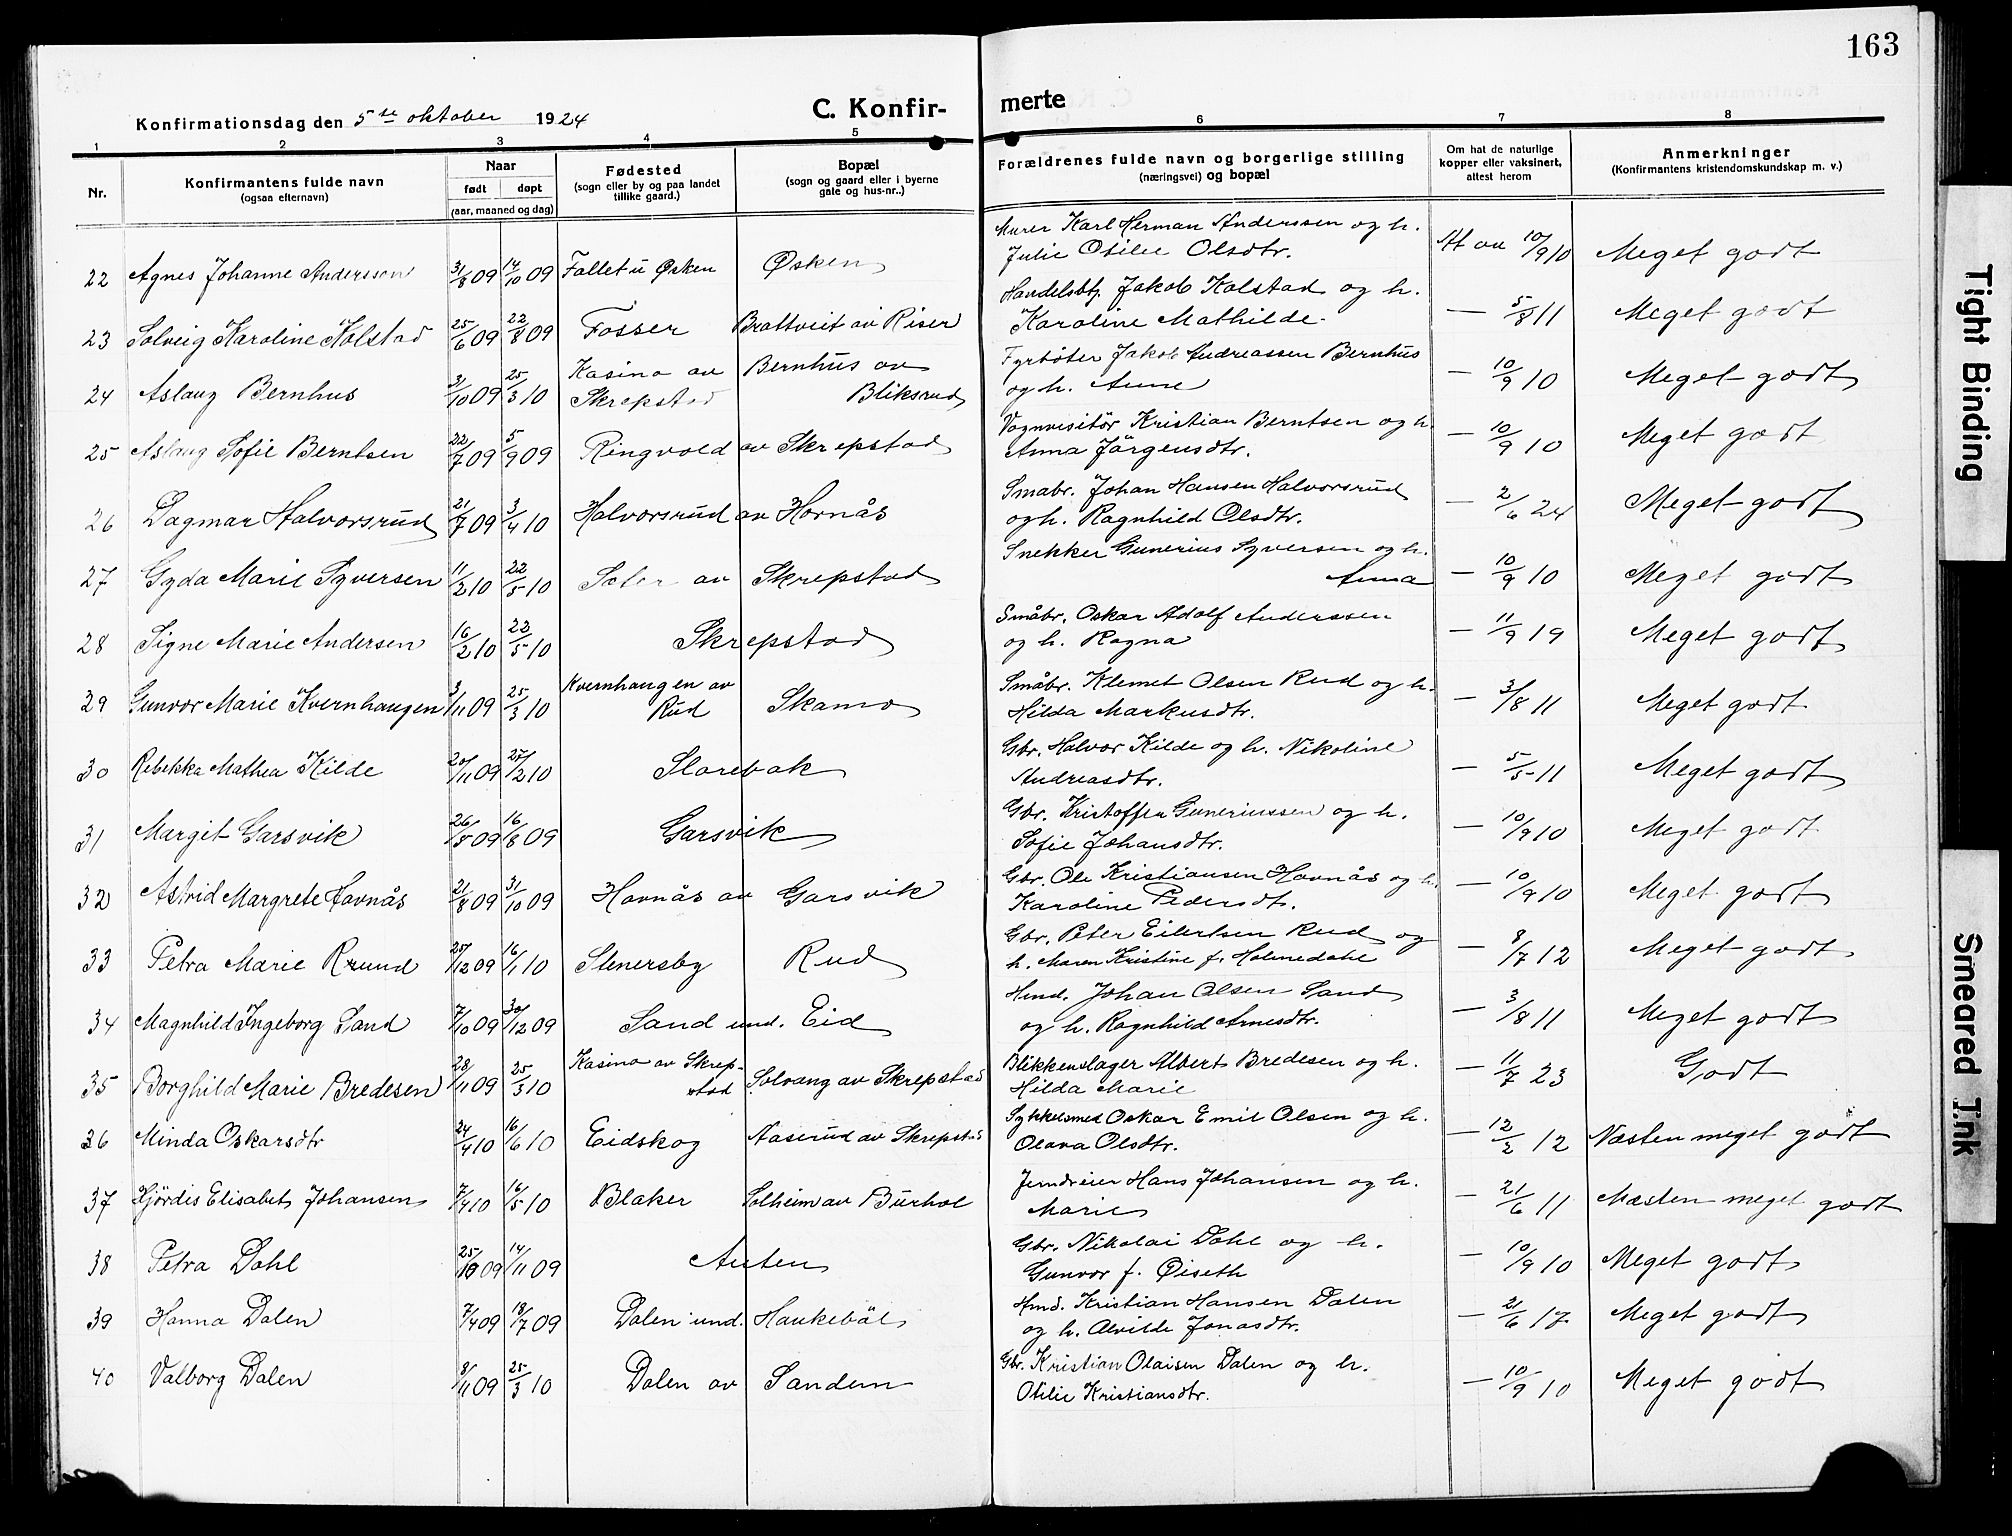 163
Konfirmationsdag den 5te oktober 1924
C. Konfir-
merte
1 2 3 4 5 6 7 8
Nr.
Konfirmantens fulde navn
(ogsaa efternavn)
Naar
født døpt
(aar, maaned og dag)
Fødested
(sogn eller by og paa landet
tillike gaard.)
Bopæl
(sogn og gaard eller i byerne
gate og hus-nr..)
Forældrenes fulde navn og borgerlige stilling
(næringsvei) og bopæl
Om hat de naturlige
kopper eller vaksinert,
attest herom
Anmerkninger
(Konfirmantens kristendomskundskap m. v.)
Murer Karl Herman Anderssen og h.
22 Agnes Johanne Anderssen 31/8 09 14/10 09 Fallet u Øsken Øsken Julie Otilie Olsdtr. At av 10/9 10 Meget godt
Handelsbtj. Jakob Kolstad og h.
23 Solveig Karoline Kolstad 25/6 09 22/8 09 Fosser Brattveit av Riser Karoline Mathilde. — 5/8 11 Meget godt
Kasino av Bernhus av Fyrbøter Jakob Andreassen Bernhus
24 Aslaug Bernhus 3/10 09 25/3 10 Skrepstad Bliksrud og h. Anne — 10/9 10 Meget godt
Vognvisitör Kristian Berntsen og h.
25 Aslaug Sofie Berntsen 22/7 09 5/9 09 Ringvold av Skrepstad Anna Jörgensdtr. — 10/9 10 Meget godt
Smabr. Johan Hansen Halvorsrud
26 Dagmar Halvorsrud 21/7 09 3/4 10 Halvorsrud av Hornås og h. Ragnhild Olsdtr. — 2/6 24 Meget godt
Snekker Gunerius Syversen og h.
27 Gyda Marie Syversen 11/2 10 22/5 10 Soler av Skrepstad Anna — 10/9 10 Meget godt
Småbr. Oskar Adolf Anderssen
28 Signe Marie Andersen 16/2 10 22/5 10 Skrepstad og h. Ragna — 11/9 19 Meget godt
Kvernhaugen av Småbr. Klemet Olsen Rud og h.
29 Gunvor Marie Kvernhaugen 3/11 09 25/3 10 Rud Skamo Hilda Markusdtr. — 3/8 11 Meget godt
Gbr. Halvor Kilde og h. Nikoline
30 Rebekka Mathea Kilde 20/11 09 27/2 10 Slorebak Andreasdtr. — 5/5 11 Meget godt
Gbr. Kristoffer Guneriussen og h.
31 Margit Garsvik 26/5 09 16/8 09 Garsvik Sofie Johansdtr. — 10/9 10 Meget godt
Gbr. Ole Kristiansen Havnås og h.
32 Astrid Margrete Havnås 21/8 09 31/10 09 Havnås av Garsvik Karoline Pedersdt. — 10/9 10 Meget godt
Gbr. Peter Eilertsen Rud og
33 Petra Marie Ruud 25/12 09 16/1 10 Stenersby Rud h. Maren Kristine f. Holmedahl — 8/7 12 Meget godt
Hmd. Johan Olsen Sand
34 Magnhild Ingeborg Sand 7/10 09 30/12 09 Sand und. Eid og h. Ragnhild Arnesdtr. — 3/8 11 Meget godt
Kasino av Skrep- Blikkenslager Albert Bredesen og h.
35 Borghild Marie Bredesen 28/11 09 25/3 10 stad Solvang av Skrepstad Hilda Marie — 11/7 23 Godt
Sykkelsmed Oskar Emil Olsen og h.
36 Minda Oskarsdtr 24/4 10 16/6 10 Eidskog Aaserud av Skrepstad Olava Olsdtr. — 12/2 12 Næsten meget godt
Jerndreier Hans Johansen og h.
37 Hjördis Elisabet Johansen 7/4 10 16/5 10 Blaker Solheim av Burhol Marie — 21/6 11 Næsten meget godt
Gbr. Nikolai Dahl og h.
38 Petra Dahl 25/10 09 14/11 09 Auten Gunvor f. Øiseth — 10/9 10 Meget godt
Hmd. Kristian Hansen Dalen
39 Hanna Dalen 7/4 09 18/7 09 Dalen und. Haukebøl og h. Alvilde Jonasdtr. — 21/6 17 Meget godt
Gbr. Kristian Olaisen Dalen og h.
40 Valborg Dalen 8/11 09 25/3 10 Dalen av Sandem Otilie Kristiansdtr. — 10/9 10 Meget godt
Tight Binding
Smeared Ink